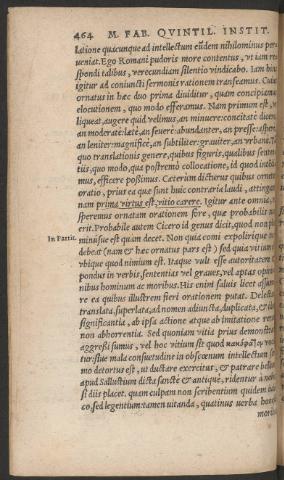 464 M. FAB. QVINTIL. INSTIT.
latione quacunque ad intellectum eũdem nihilominus per
ueniat. Ego Romani pudoris more contentus, ut iam res
spondi talibus, verecundiam silentio vindicabo. Iam hinc
igitur ad coniuncti sermonis rationem transeamus. Cuius
ornatus in hæc duo prima diuiditur, quam concipiamus
elocutionem, quo modo efferamus. Nam primum est, vt
liqueat, augere quid velimus, an minuere: concitatè dicere,
an moderatè: lætè, an seuerè: abundanter, an pressè: asperè,
an leniter: magnificè, an subtiliter: grauiter, an vrbanè. Tum
quo translationis genere, quibus figuris, qualibus senten
tiis, quo modo, qua postremò collocatione, id quod intēdi
mus, efficere possimus. Cæterùm dicturus quibus ornetur
oratio, prius ea quæ sunt huic contraria laudi, attingam:
nam prima virtus est, vitio carere. Igitur ante omnia, ne
speremus ornatam orationem fore, quæ probabilis non
erit. Probabile autem Cicero id genus dicit, quod non plus
In Partit. minúsue est quàm decet. Non quia comi expolirique non
debeat (nam & hæc ornatus pars est) sed quia vitium est
vbique quod nimium est. Itaque vult esse autoritatem &
pondus in verbis, sententias vel graues, vel aptas opinio
nibus hominum ac moribus. His enim saluis licet assume
re ea quibus illustrem fieri orationem putat. Delecta,
translata, superlata, ad nomen adiuncta, duplicata, & idem
significantia, ab ipsa actione atque ab imitatione rerum
non abhorrentia. Sed quoniam vitia prius demonstrare
aggressi sumus, vel hoc vitium sit quod κακόφατον voca
tur: siue mala consuetudine in obscœnum intellectum ser
mo detortus est, ut ductare exercitus, & patrare bellum,
apud Sallustium dicta sanctè & antiquè, ridentur à nobis,
si diis placet. quam culpam non scribentium quidem iudi
co, sed legentium: tamen uitanda, quatinus uerba honesta
moribus